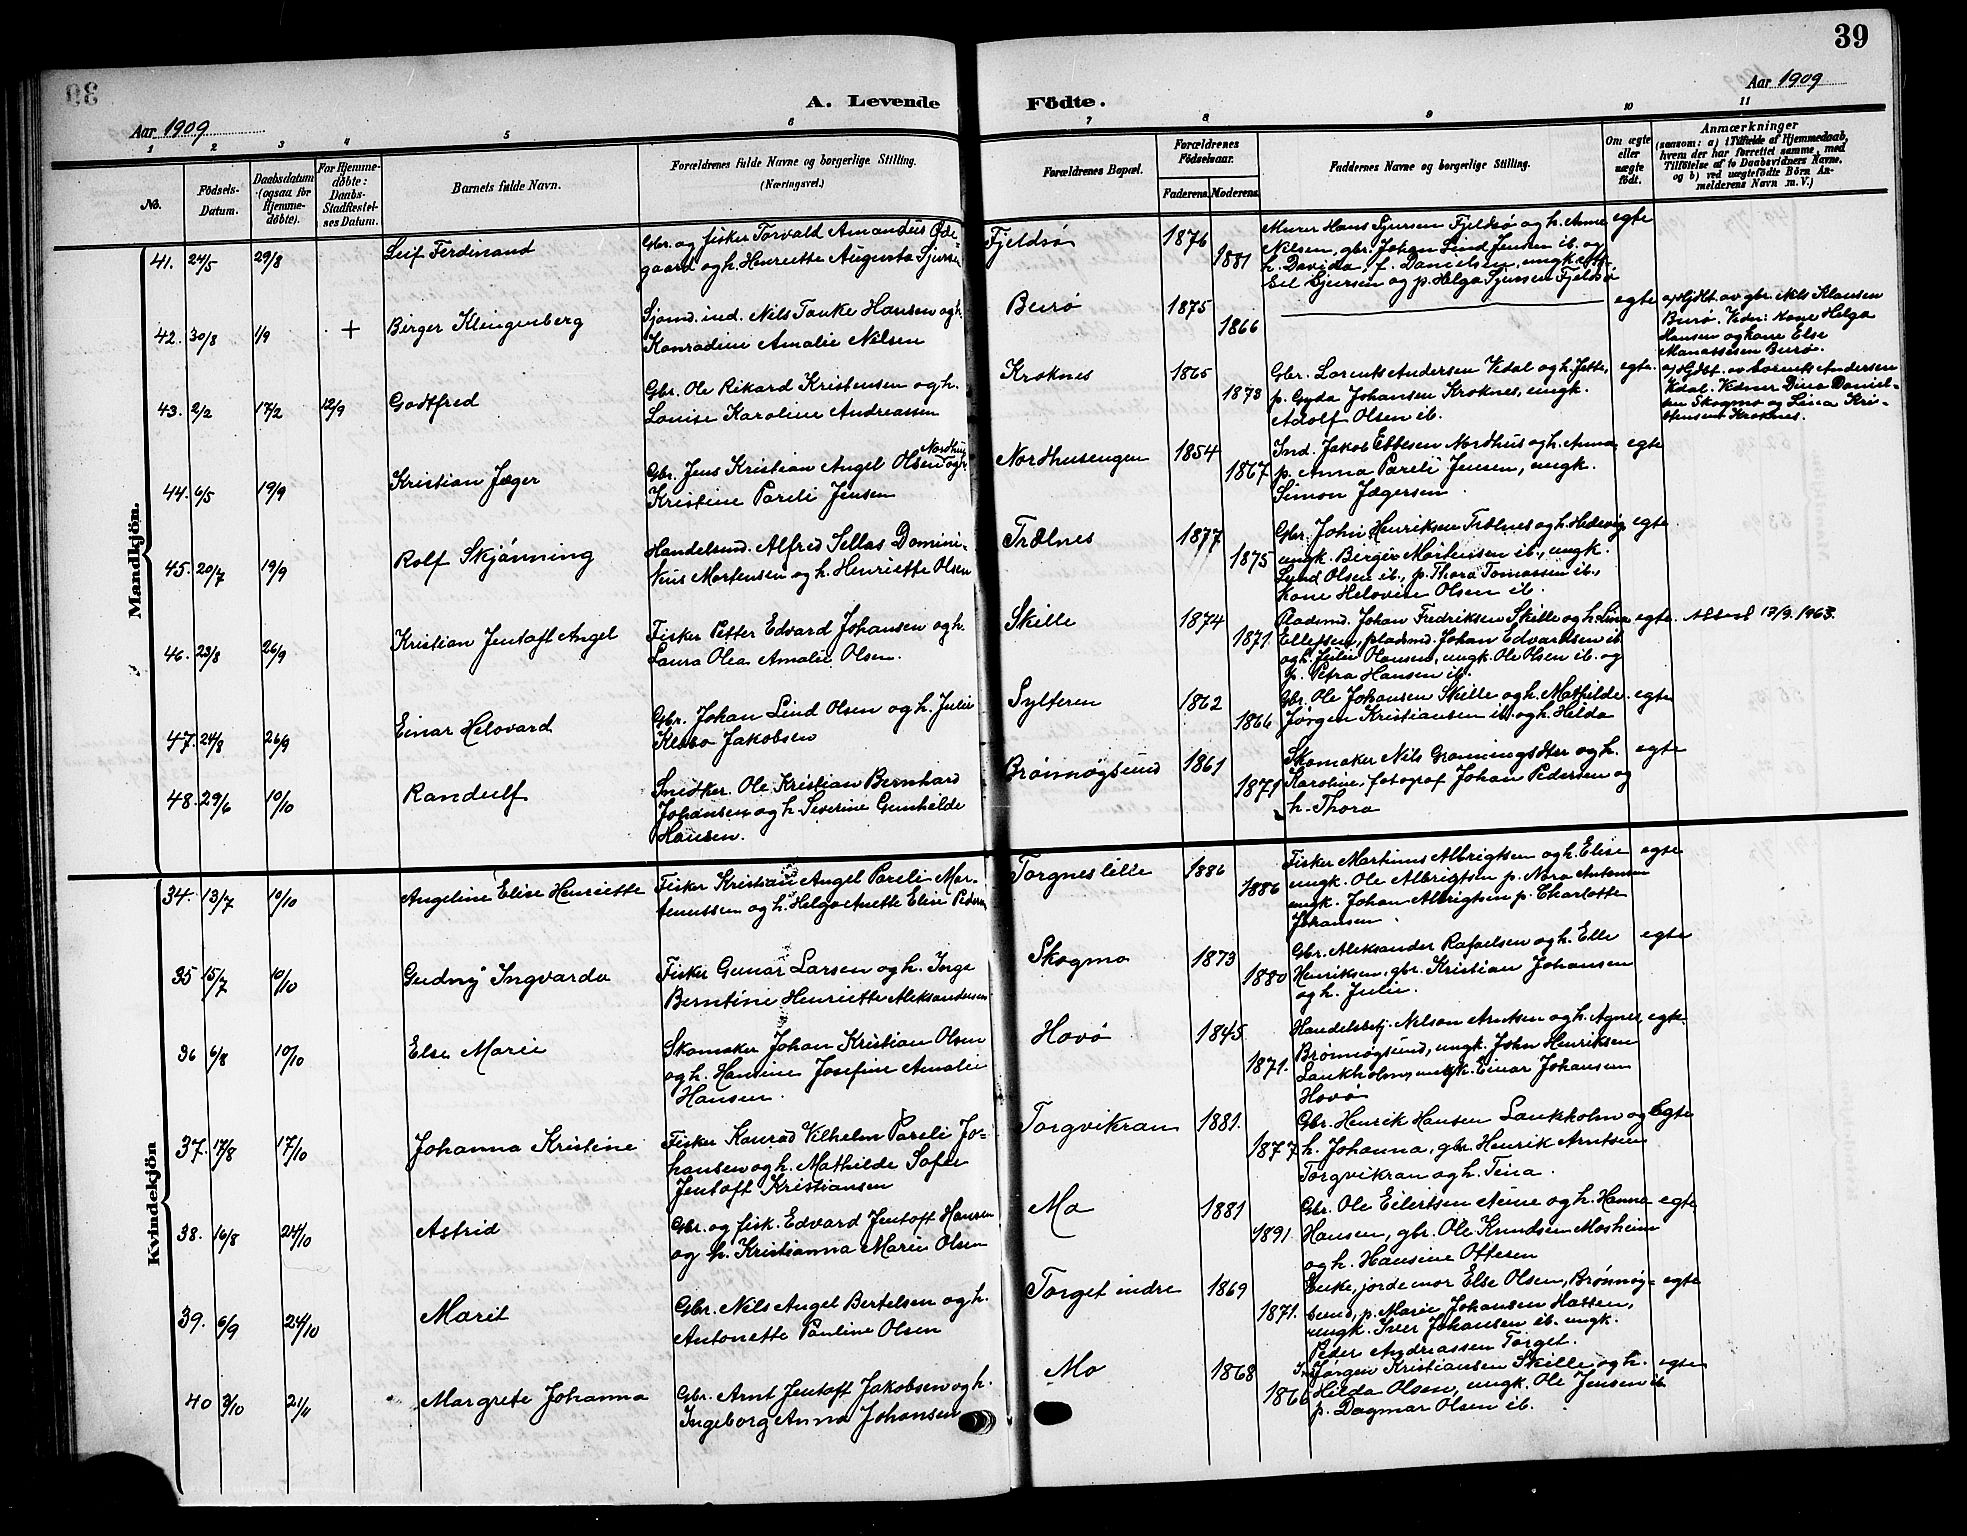 39
Aar 1909
A. Levende Födte.
Aar 1909
1 2 3 4 5 6 7 8 9 10 11
No.
Födsels-Datum.
Daabsdatum (ogsaa for Hjemmedöbte).
For Hjemmedöbte: Daabs-Stadfestelses Datum.
Barnets fulde Navn.
Forældrenes fulde Navne og borgerlige Stilling. (Næringsvei.)
Forældrenes Bopæl.
Forældrenes Födselsaar.
Faderens. Moderens.
Faddernes Navne og borgerlige Stilling.
Om ægte eller uægte födt.
Anmærkninger
(saasom: a) i Tilfælde af Hjemmedaab,
hvem der har forrettet samme, med
Tilföielse af to Daabsvidners Navne,
og b) ved uægtefödte Börn Anmelderens Navn m. V.)
Mandkjön.
41. 24/5 29/8 Leif Ferdinand
Gbr. og fisker Torvald Amandus Øde-
gaard og h. Henriette Augusta Sjursen
Fjeldsø 1876 1881
Murer Hans Sjursen Fjeldsø og h. Anne
Nilsen, gbr. Johan Lind Jensen ib. og
h. Davida, f. Danielsen, ungk.
Sjursen og p. Helga Sjursen Fjeldsø
egte
42. 30/8 1/9 + Birger Klingenberg
Sjømd. ind. Nils Tanke Hansen og h.
Konradine Amalie Nilsen
Burø 1875 1866
egte
a) Hjdt. av gbr. Nils Klausen
Burø. Vidn: Kone Helga
Hansen og kone Else
Manassesen Burø.
43. 2/2 17/2 12/9 Godtfred
Gbr. Ole Rikard Kristensen og h.
Louise Karoline Andreassen
Kroknes 1865 1873
Gbr. Lorents Andersen Vedal og h. Jette,
p. Gyda Johansen Kroknes, ungk.
Adolf Olsen ib.
egte.
a) Hjdt. av Lorents Andersen
Vedal. Vidner Dina Daniel-
sen Skogmo og Lina Kri-
stensen Kroknes.
44. 6/5 19/9 Kristian Jæger
Nordhus
Gbr. Jens Kristian Angel Olsen og h.
Kristine Pareli Jensen
Nordhusengen 1854 1867
Ind. Jakob Ebbesen Nordhus og h. Anna,
p. Anna Pareli Jensen, ungk.
Simon Jægersen
egte
45. 20/7 19/9 Rolf Skjønning
Handelsmd. Alfred Sellas Domini-
kus Mortensen og h. Henriette Olsen
Trælnes 1877 1875
Gbr. John Henriksen Trælnes og h. Hedevig,
ungk. Berger Mortensen ib., ungk.
Lund Olsen ib., p. Thora Tomassen ib.,
Kone Helovise Olsen ib.
egte
46. 23/8 26/9 Kristian Jentoft Angel
Fisker Petter Edvard Johansen og h.
Laura Olea Amalie Olsen.
Skille 1874 1871.
Pladsmd. Johan Fredriksen Skille og h. Lina
Ellefsen, pladsmd. Johan Edvardsen ib
og h. Julie Hansen, ungk. Ole Olsen ib. og
p. Petra Hansen ib.
egte. Attest 17/9.1963.
47. 24/8 26/9 Einar Helovard
Gbr. Johan Lind Olsen og h. Julie
Klebo Jakobsen
Sylteren 1862 1866
Gbr. Ole Johansen Skille og h. Mathilde
Jørgen Kristiansen ib. og h. Hilda
egte
48. 29/6 10/10 Randulf
Snedker Ole Kristian Bernhard
Johansen og h. Severine Gunhilde
Hansen.
Brønnøysund 1861 1871
Skomaker Nils Grønningsæter og h.
Karoline, fotograf Johan Pedersen og
h. Thora
egte
Kvindekjön
34. 13/7 10/10 Angeline Elise Henriette
Fisker Kristian Angel Pareli Mar-
tinussen og h. Helga Anette Elise Pedersen
Torgneslille 1886 1886
Fisker Martinus Albrigtsen og h. Elise
ungk. Ole Albrigtsen p. Nora Antonsen
ungk. Johan Albrigtsen p. Charlotte
Johansen
egte
35 15/7 10/10 Gudny Ingvarda
Fisker Gunar Larsen og h. Inge
Berntine Henriette Aleksandersen
Skogmo 1873 1880
Gbr. Aleksander Rafaelsen og h. Elle
Henriksen, gbr. Kristian Johansen
og h. Julie.
egte
36 6/8 10/10 Else Marie
Skomaker Johan Kristian Olsen
og h. Hansine Josefine Amalie
Hansen.
Hovø 1845 1871.
Handelsbetj. Nelson Arntsen og h. Agnes,
Brønnøysund, ungk. John Henriksen
Laukholm, ungk. Einar Johansen
Hovø
egte.
37. 17/8 17/10 Johanna Kristine
Fisker Konrad Vilhelm Pareli Jo-
hansen og h. Mathilde Sofie
Jentoft Kristiansen
Torgvikran 1881. 1877
Gbr. Henrik Hansen Laukholm og
h. Johanna, gbr. Henrik Arntsen
Torgvikran og h. Tina.
Egte
38. 16/8 24/10 Astrid
Gbr. og fisk. Edvard Jentoft Hansen
og h. Kristianna Marie Olsen
Mo 1881 1891.
Gbr. Ole Eilertsen og h. Hanna
Hansen, gbr. Ole Knudsen Mosheim
og h. Hansine Ottesen
egte
39. 6/9 24/10 Marit
Gbr. Nils Angel Bertelsen og h.
Antonette Pauline Olsen
Torget indre 1869 1871.
Enke, jordemor Else Olsen, Brønnøy-
sund, p. Marie Johansen Hatten,
ungk. Iver Johansen ib. ungk.
Peder Andreassen Torget.
egte
40 3/10 21/11 Margrete Johanna
Gbr. Arnt Jentoft Jakobsen og h.
Ingeborg Anna Johansen
Mo 1868 1866
Jørgen Kristiansen Skille og h.
Hilda Olsen, ungk. Ole Jensen ib
p. Dagmar Olsen ib.
egte